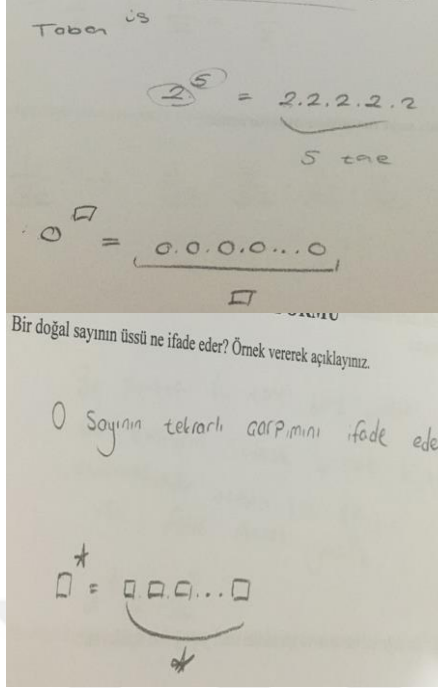 Taban üs
2⁵ = 2.2.2.2.2
5 tae
○^▱ = ○.○.○.○...○
▱
Bir doğal sayının üssü ne ifade eder? Örnek vererek açıklayınız.
O Sayının tekrarlı çarpımını ifade ede
□^* = □.□.□...□
*